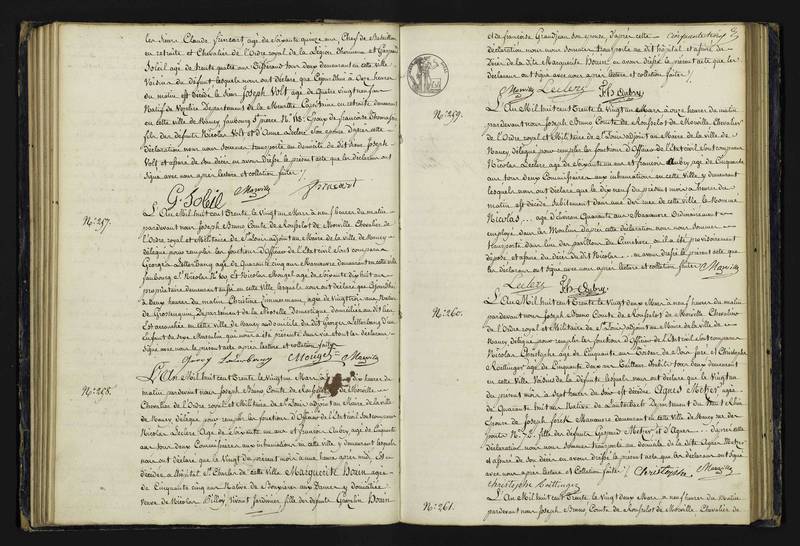 les Sieurs Claude Fincart agé de Soixante quinze ans, Chef de Bataillon
en retraite et Chevalier de l'Ordre royal de la Légion d'honneur et Gaspard
Soleil agé de trente quatre ans tous deux demeurant en cette ville
Voisins du défunt lesquels nous ont déclaré que à Onze heures
du matin est décédé le Sieur Joseph Volt agé de Quatre vingt trois ans
Natif de Département de la Meurthe Capitaine en retraite demeurant
en cette ville de Nancy faubourg St pierre No 118. Epoux de françoise Thomassin
fils des défunts Nicolas Volt et d'Anne Leclerc son épouse d'après cette
déclaration nous nous sommes transporté au domicile du dit Sieur Joseph
Volt et assuré de son décès en avons dressé le présent acte que les déclarans ont
signé avec nous après lecture et collation faites
G. Soleil Moirville Fincart
No. 257.
L'An Mil huit cent Trente le Vingt un Mars à neuf heures du matin
pardevant nous Joseph Bruno Comte de Rousselot de Morville, Chevalier de
l'Ordre royal et Militaire de St Louis adjoint au Maire de la ville de Nancy
délégué pour remplir les fonctions d'Officier de l'Etat civil sont comparus
Georges Letterbourg agé de Quarante cinq ans Manoeuvre demeurant en cette ville
faubourg et Nicolas Mougel agé de Soixante dix huit ans
propriétaire demeurant aussi en cette ville, lesquels nous ont déclaré que
à deux heures du matin Christine Zimmermann, agée de Vingt trois ans Native
de Grostenquin, Département de la Moselle Domestique, domiciliée au dit lieu
Est accouchée en cette ville de Nancy au domicile du dit Georges Letterbourg d'un
Enfant du sexe Masculin qui nous a été présenté sans vie et ont les déclarans
signé avec nous le présent acte après lecture et collation faites
Mougel Moirville
No. 258.
L'An Mil huit cent Trente le Vingt un Mars à dix heures du
matin pardevant nous Joseph Bruno Comte de Rousselot de Morville
Chevalier de l'Ordre royal et Militaire de St Louis adjoint au Maire de la ville
de Nancy délégué pour remplir les fonctions d'Officier de l'Etat civil sont comparus
Nicolas Leclerc Agé de Soixante ans et François Aubry agé de Cinquante
ans tous deux Commissaires aux inhumations en cette Ville y demeurant lesquels
nous ont déclaré que le Vingt du présent mois à une heure après midi Est
décédée à l'hôpital St Charles de cette ville Marguerite Houin agée
de Cinquante cinq ans Native de Bouxières aux Dames y domiciliée
veuve de Nicolas Billoy, vivant Jardinier, fille des défunts Houin
et de françoise Grandjean son épouse, d'après cette cinquante cinq
déclaration nous nous sommes transporté au dit hôpital et assuré du
Décès de la dite Marguerite Houin en avons dressé le présent acte que les
déclarans ont signé avec nous après lecture et collation faites
Moirville Leclerc Fh Aubry
No. 259.
L'An Mil huit cent Trente le Vingt un Mars à onze heures du matin
pardevant nous Joseph Bruno Comte de Rousselot de Morville, Chevalier
de l'Ordre royal et Militaire de St Louis adjoint au Maire de la ville de
Nancy délégué pour remplir les fonctions d'Officier de l'Etat civil sont comparus
Nicolas Leclerc agé de Soixante un ans et François Aubry agé de Cinquante
ans tous deux Commissaires aux inhumations en cette Ville y demeurant
lesquels nous ont déclaré que le dix neuf du présent mois à heures du
matin est décédé subitement dans une des rues de cette ville le Nommé
Nicolas... agé d'environ Quarante ans Manoeuvre Ordinairement
employé dans les Moulins d'après cette déclaration nous nous sommes
transporté dans l'un des pavillons du Cimetière où il a été provisoirement
déposé et assuré du décès du dit Nicolas en avons dressé le présent acte que
les déclarans ont signé avec nous après lecture et collation faites Moirville
Leclerc Fh Aubry
No. 260.
L'An Mil huit cent Trente le Vingt deux Mars à neuf heures du matin
pardevant nous Joseph Bruno Comte de Rousselot de Morville, Chevalier
de l'Ordre royal et Militaire de St Louis adjoint au Maire de la ville de
Nancy délégué pour remplir les fonctions d'Officier de l'Etat civil sont comparus
Nicolas Christophe agé de Cinquante ans de Bois et Christophe
Roettinger agé de Cinquante deux ans Tailleur d'habits tous deux demeurant
en cette Ville Voisins de la défunte lesquels nous ont déclaré que le
du présent mois à sept heures du soir est décédée Agnès Metzer agée
de Quarante huit ans Native de Département du Haut Rhin
Epouse de Joseph forck Manoeuvre demeurant en cette Ville de Nancy rue des
No. 72. fille des défunts Gaspard Metzer et d'Agnès ... d'après cette
déclaration nous nous sommes transporté au domicile de la dite Agnès Metzer
et assuré de son décès en avons dressé le présent acte que les déclarans ont signé
avec nous après lecture et Collation faites Christophe Moirville
christophe Roettinger
No. 261.
L'An Mil huit cent Trente le Vingt deux Mars à neuf heures du Matin
pardevant nous Joseph Bruno Comte de Rousselot de Morville, Chevalier de